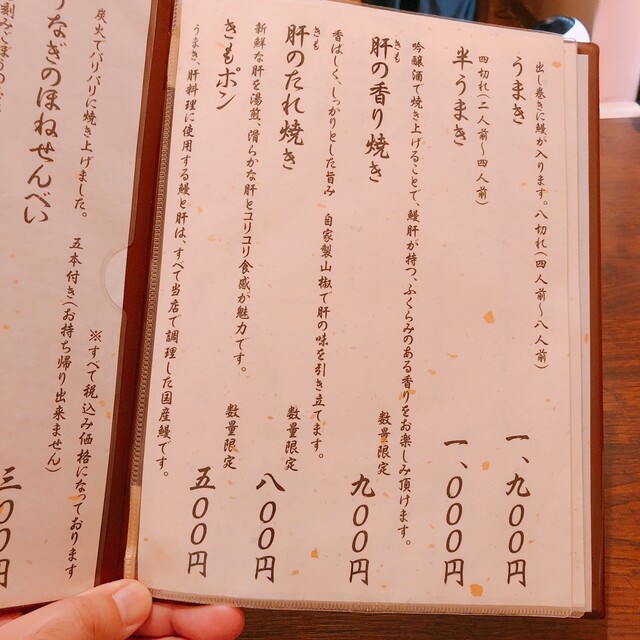 うまき 一、九〇〇円
出し巻きに鰻が入ります。八切れ(四人前〜八人前)
半うまき 一、〇〇〇円
四切れ(二人前〜四人前)
肝の香り焼き 数量限定 九〇〇円
きも
吟醸酒で焼き上げることで、鰻肝が持つ、ふくらみのある香りをお楽しみ頂けます。
肝のたれ焼き 数量限定 八〇〇円
きも
香ばしく、しっかりとした旨み 自家製山椒で肝の味を引き立てます。
きもポン 数量限定 五〇〇円
新鮮な肝を湯煎、滑らかな肝とコリコリ食感が魅力です。
うまき、肝料理に使用する鰻と肝は、すべて当店で調理した国産鰻です。
※すべて税込み価格になっております
炭火でパリパリに焼き上げました。 五本付き(お持ち帰り出来ません)
うなぎのほねせんべい 三〇〇円